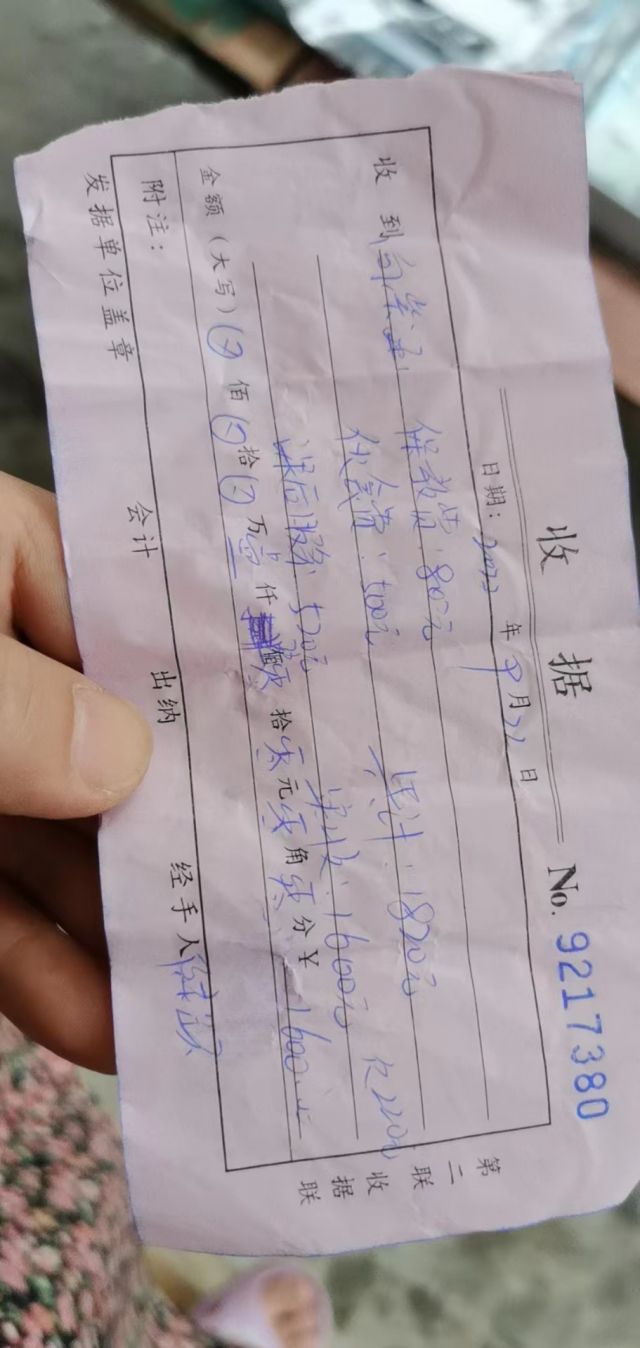 收 据
No. 9217380
日期：2022 年 9 月 22 日
收 到
保教费：800元 共计：1820元
伙食费：500元 实收：1600元 欠220元
课后服务：520元
金额（大写） 佰 拾 万 壹 仟 拾 零 元 零 角 零 分 ￥ 1600元
附注：
发据单位盖章 会计 出纳 经手人
第二联 收据联